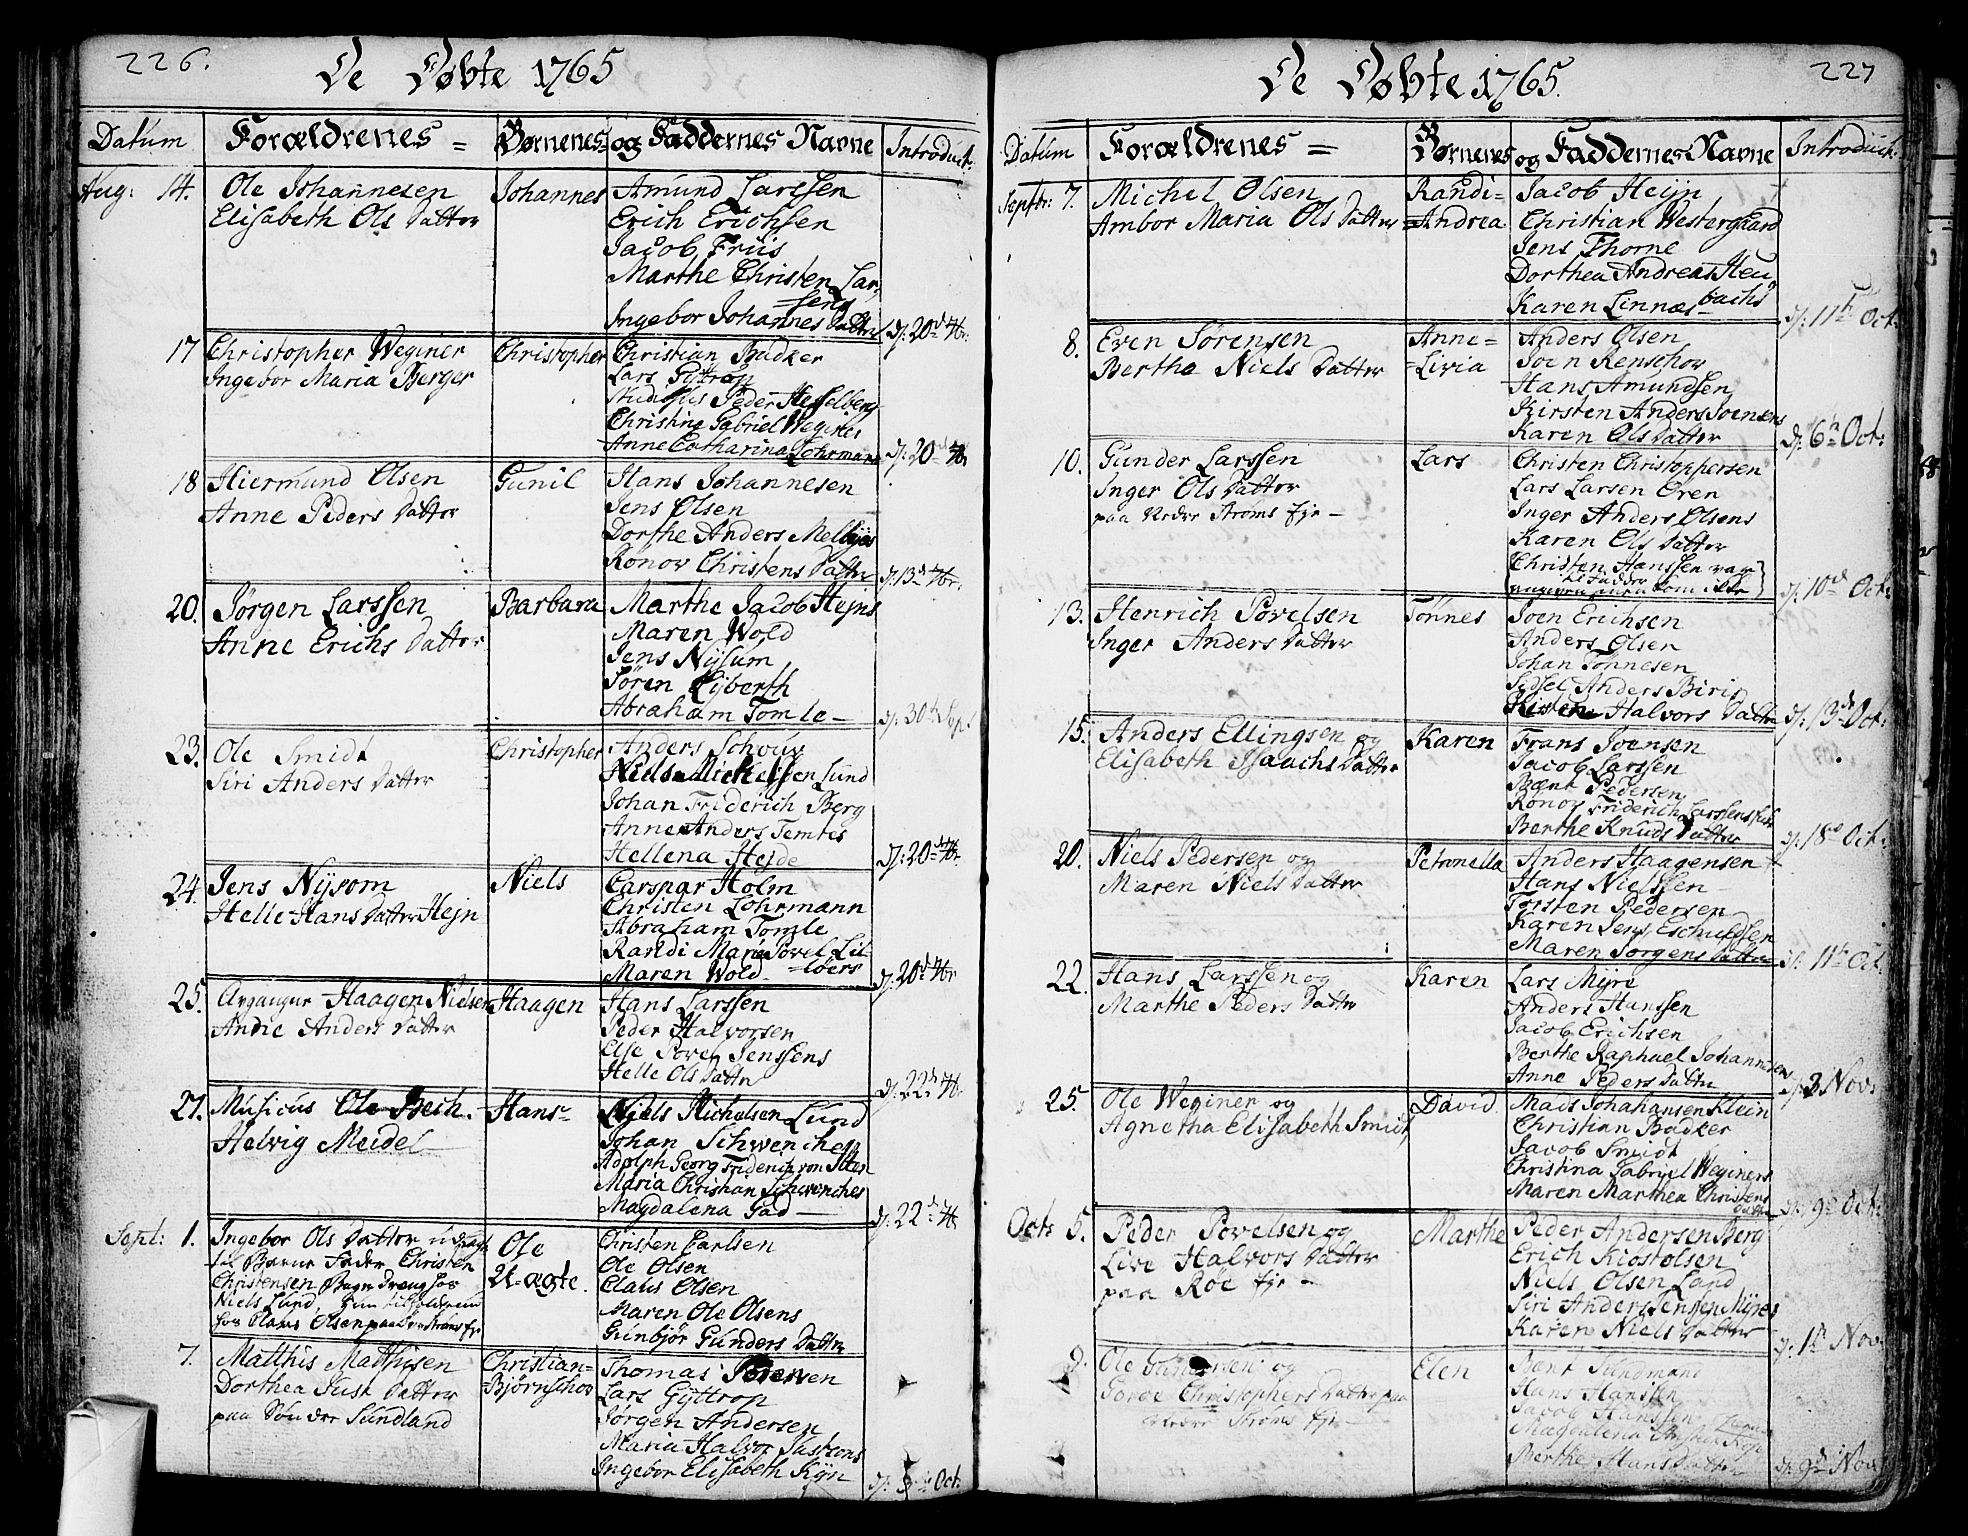 226.
De Døbte 1765
Datum
Forældrenes =
Børnenes = og Faddernes Navne
Introduct:
Aug: 14.
Ole Johannesen
Elisabeth Ols Datter
Johannes
Amund Larssen
Erich Erichsen
Jacob Friis
Marthe Christen Lar-
sens
Ingebor Johannes Datter
d: 20d 7br.
17
Christopher Weginer
Ingebor Maria Berger
Christopher
Christian Bødker
Lars Gyttrop
Studiosus Peder Hesselberg
Christine Gabriel Weginer
Anne Catharina Lohrmann
d: 20d 7br
18
Hiermund Olsen
Anne Peders Datter
Gunil
Hans Johannesen
Jens Olsen
Dorthe Anders Melbyes
Ronov Christens Datter
d: 13d 7br.
20.
Jørgen Larssen
Anne Erichs Datter
Barbara
Marthe Jacob Hejns
Maren Wold
Jens Nysum
Søren Lyberth
Abraham Tomle
d: 30d Sep.
23.
Ole Smidt
Siri Anders Datter
Christopher
Anders Schouv
Niels Michelssen Lund
Johan Friderich Berg
Anne Anders Temtes
Hellena Hejde
d: 20d 7br.
24.
Jens Nysom
Helle Hans Datter Hejn
Niels
Carspar Holm
Christen Lohrmann
Abraham Tomle
Randi Marie Povel Lil-
løers
Maren Wold
d: 20d 7br
25.
Haagen Nielsen
Anne Anders Datter
Haagen
Hans Larssen
Peder Halvorsen
Else Povel Jenssens
Helle Ols Datter
d: 22d 7br.
27.
Musicus Ole Bech.
Helvig Meidel
Hans
Niels Michelsen Lund
Johan Schwenchen
Adolph Georg Friderich von
Maria Christian Schwenches
Magdalena Gad
d: 22d 7br
Sept: 1.
Ingebor Ols Datter udlagt
til Barne Fader Christen
Christensen Bager Dreng hos
Niels Lund,
hos Claus Olsen paa
Ole
Uægte.
Christen Carlsen
Ole Olsen
Claus Olsen
Maren Ole Olsens
Gunbjør Gunders Datter
7.
Matthis Mathisen
Dorthea Just Datter
paa Sønder Sundland
Christian=
=Bjørnschov
Thomas
Lars Gyttrop
Jørgen Andersen
Maria Halvor Justsons
Ingebor Elisabeth Kyn
d: Oct:
227
De Døbte 1765.
Datum
Forældrenes =
Børnenes og Faddernes Navne
Introduct:
Septbr: 7.
Michel Olsen
Ambor Maria Ols Datter
Randi=
=Andrea
Jacob Hejn
Christian Westergaard
Jens Thorne
Dorthea Andreas Heu
bachs
Karen Linnæs
d: 11th Oct:
8.
Even Sørensen
Berthe Niels Datter
Anne=
=Livia
Anders Olsen
Joen Renschov
Hans Amundsen
Kirsten Anders Joensens
Karen Ols Datter
d: 6n Oct:
10.
Gunder Larssen
Inger Ols Datter
paa Nedre Strøms Eje
Lars
Christen Christophersen
Lars Larsen Øren
Inger Anders Olsens
Karen Ols Datter
Christen Hanssen var
til Fadder
som ikke
d: 10d Oct:
13.
Henrich Povelsen
Inger Anders Datter
Tønnes
Joen Erichsen
Anders Olsen
Johan Tønnesen
Sidsel Anders Biris
Kisten Halvors Datter
d: 13d Oct:
15.
Anders Ellingsen og
Elisabeth Isaachs Datter
Karen
Frans Joensen
Jacob Larssen
Bent Pedersen
Ronov Friderich Larssens
Berthe Knuds Datter
d: 18d Oct:
20.
Niels Pedersen og
Maren Niels Datter
Petronella
Anders Haagensen
Hans Nielssen
Torsten Pedersen
Karen Jens Eschildsen
Maren Jørgens Datter
d: 11th Oct.
22.
Hans Larssen og
Marthe Peders Datter
Karen
Lars Myre
Anders Hanssen
Jacob Erichsen
Berthe Raphael Johannesens
Anne Peders Datter
d: 3 Nov:
25.
Ole Weginer og
Agnetha Elisabeth Smidt
David
Mads Johansen Klein
Christian Bødker
Jacob Smidt
Christina Gabriel Weginers
Maren Marthea Christens
Datter
d: 9d Oct:
Oct: 5.
Peder Povelsen og
Live Halvors Datter
paa Røe Eje
Marthe
Peder Andersen Berg
Erich Kiostolsen
Niels Olsen Land
Siri Anders Jensen Myres
Karen Niels Datter
d: 1d Nov:
9.
Ole Gundersen og
Christophers Datter paa
Nedre Strøms Eje
Elen
Bent Sundmand
Hans Hansen
Jacob Hanssen
Magdalena
Berthe Hans Datter
d: 9d Nov: